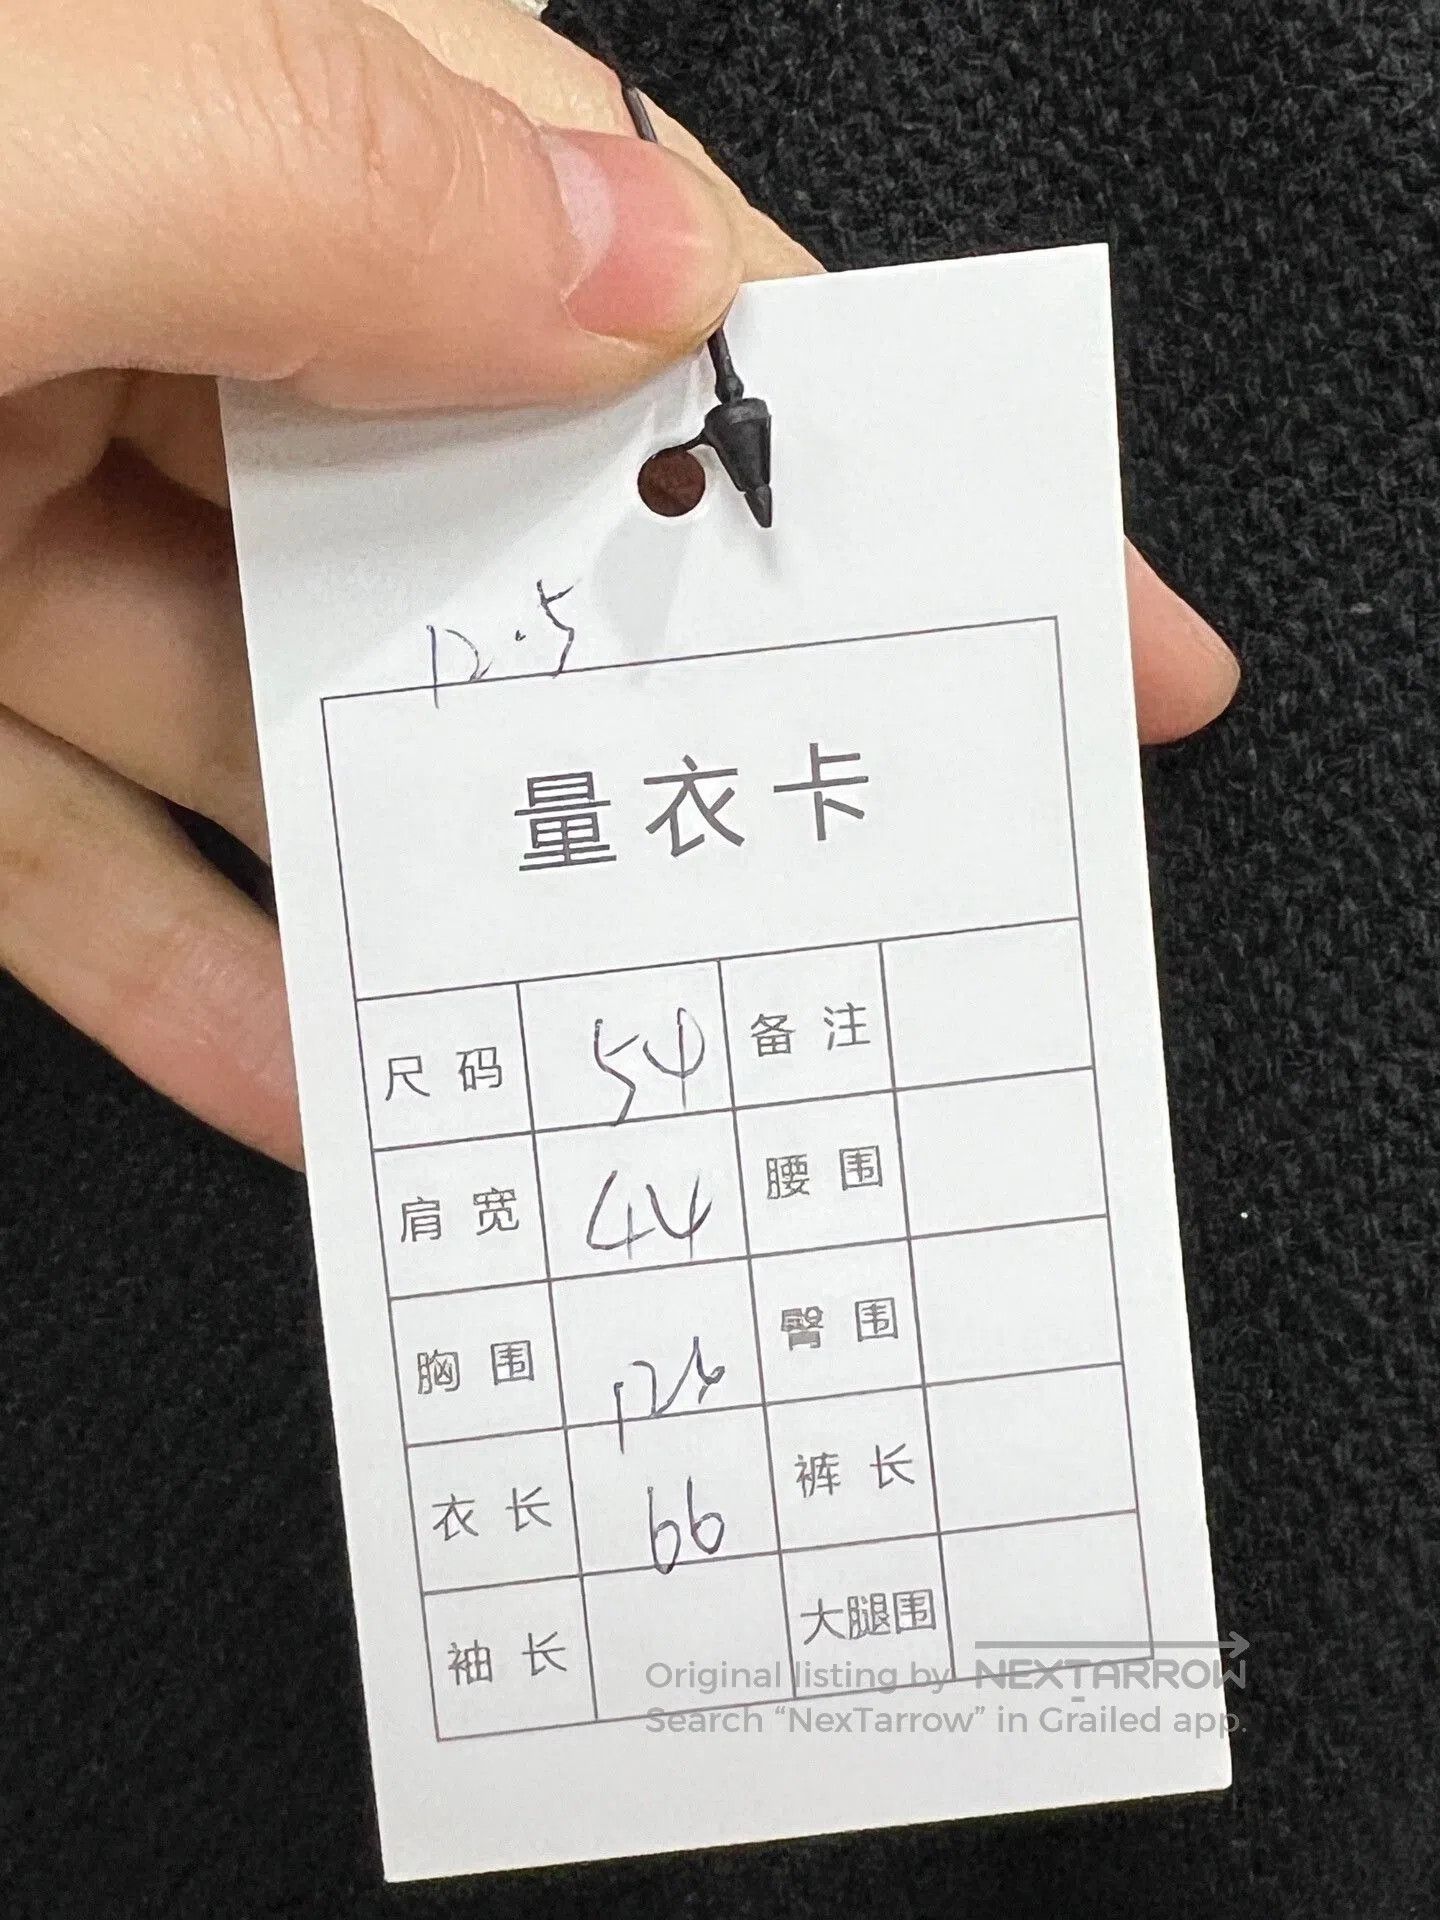 12.5
量衣卡
尺码 54 备注
肩宽 44 腰围
胸围 126 臀围
衣长 66 裤长
袖长 大腿围
Original listing by NEXTARROW
Search “NexTarrow” in Grailed app.